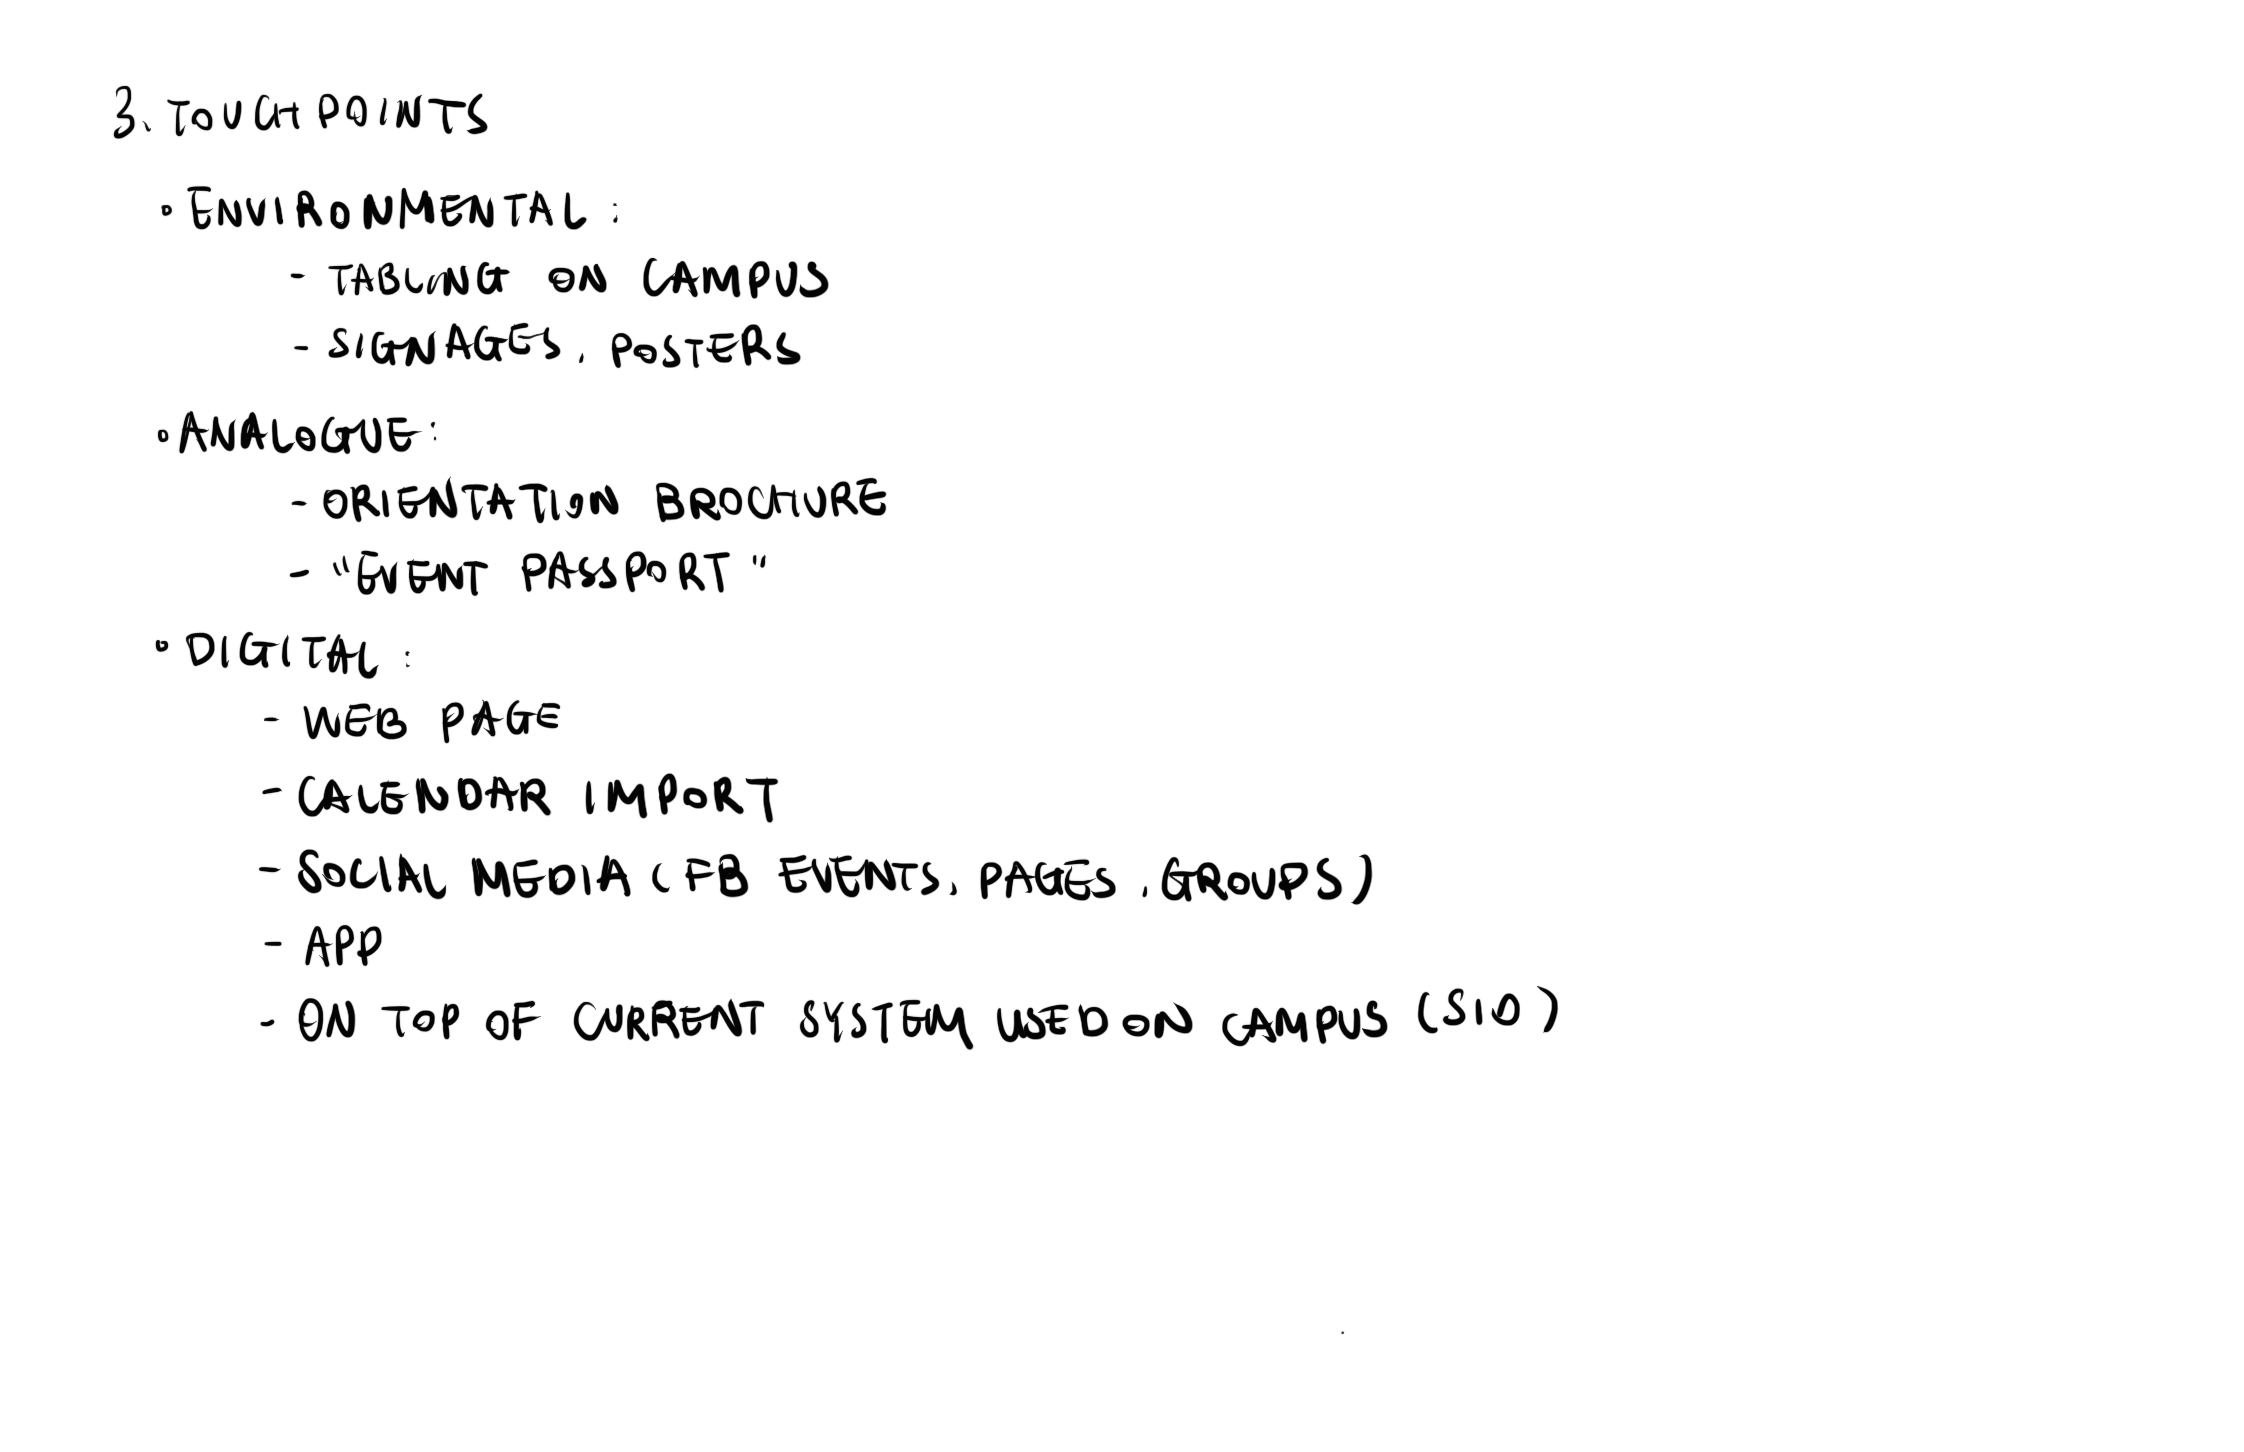 3. TOUCHPOINTS
• ENVIRONMENTAL:
- TABLING ON CAMPUS
- SIGNAGES, POSTERS
• ANALOGUE:
- ORIENTATION BROCHURE
- "EVENT PASSPORT"
• DIGITAL:
- WEB PAGE
- CALENDAR IMPORT
- SOCIAL MEDIA (FB EVENTS, PAGES, GROUPS)
- APP
- ON TOP OF CURRENT SYSTEM USED ON CAMPUS (SIO)